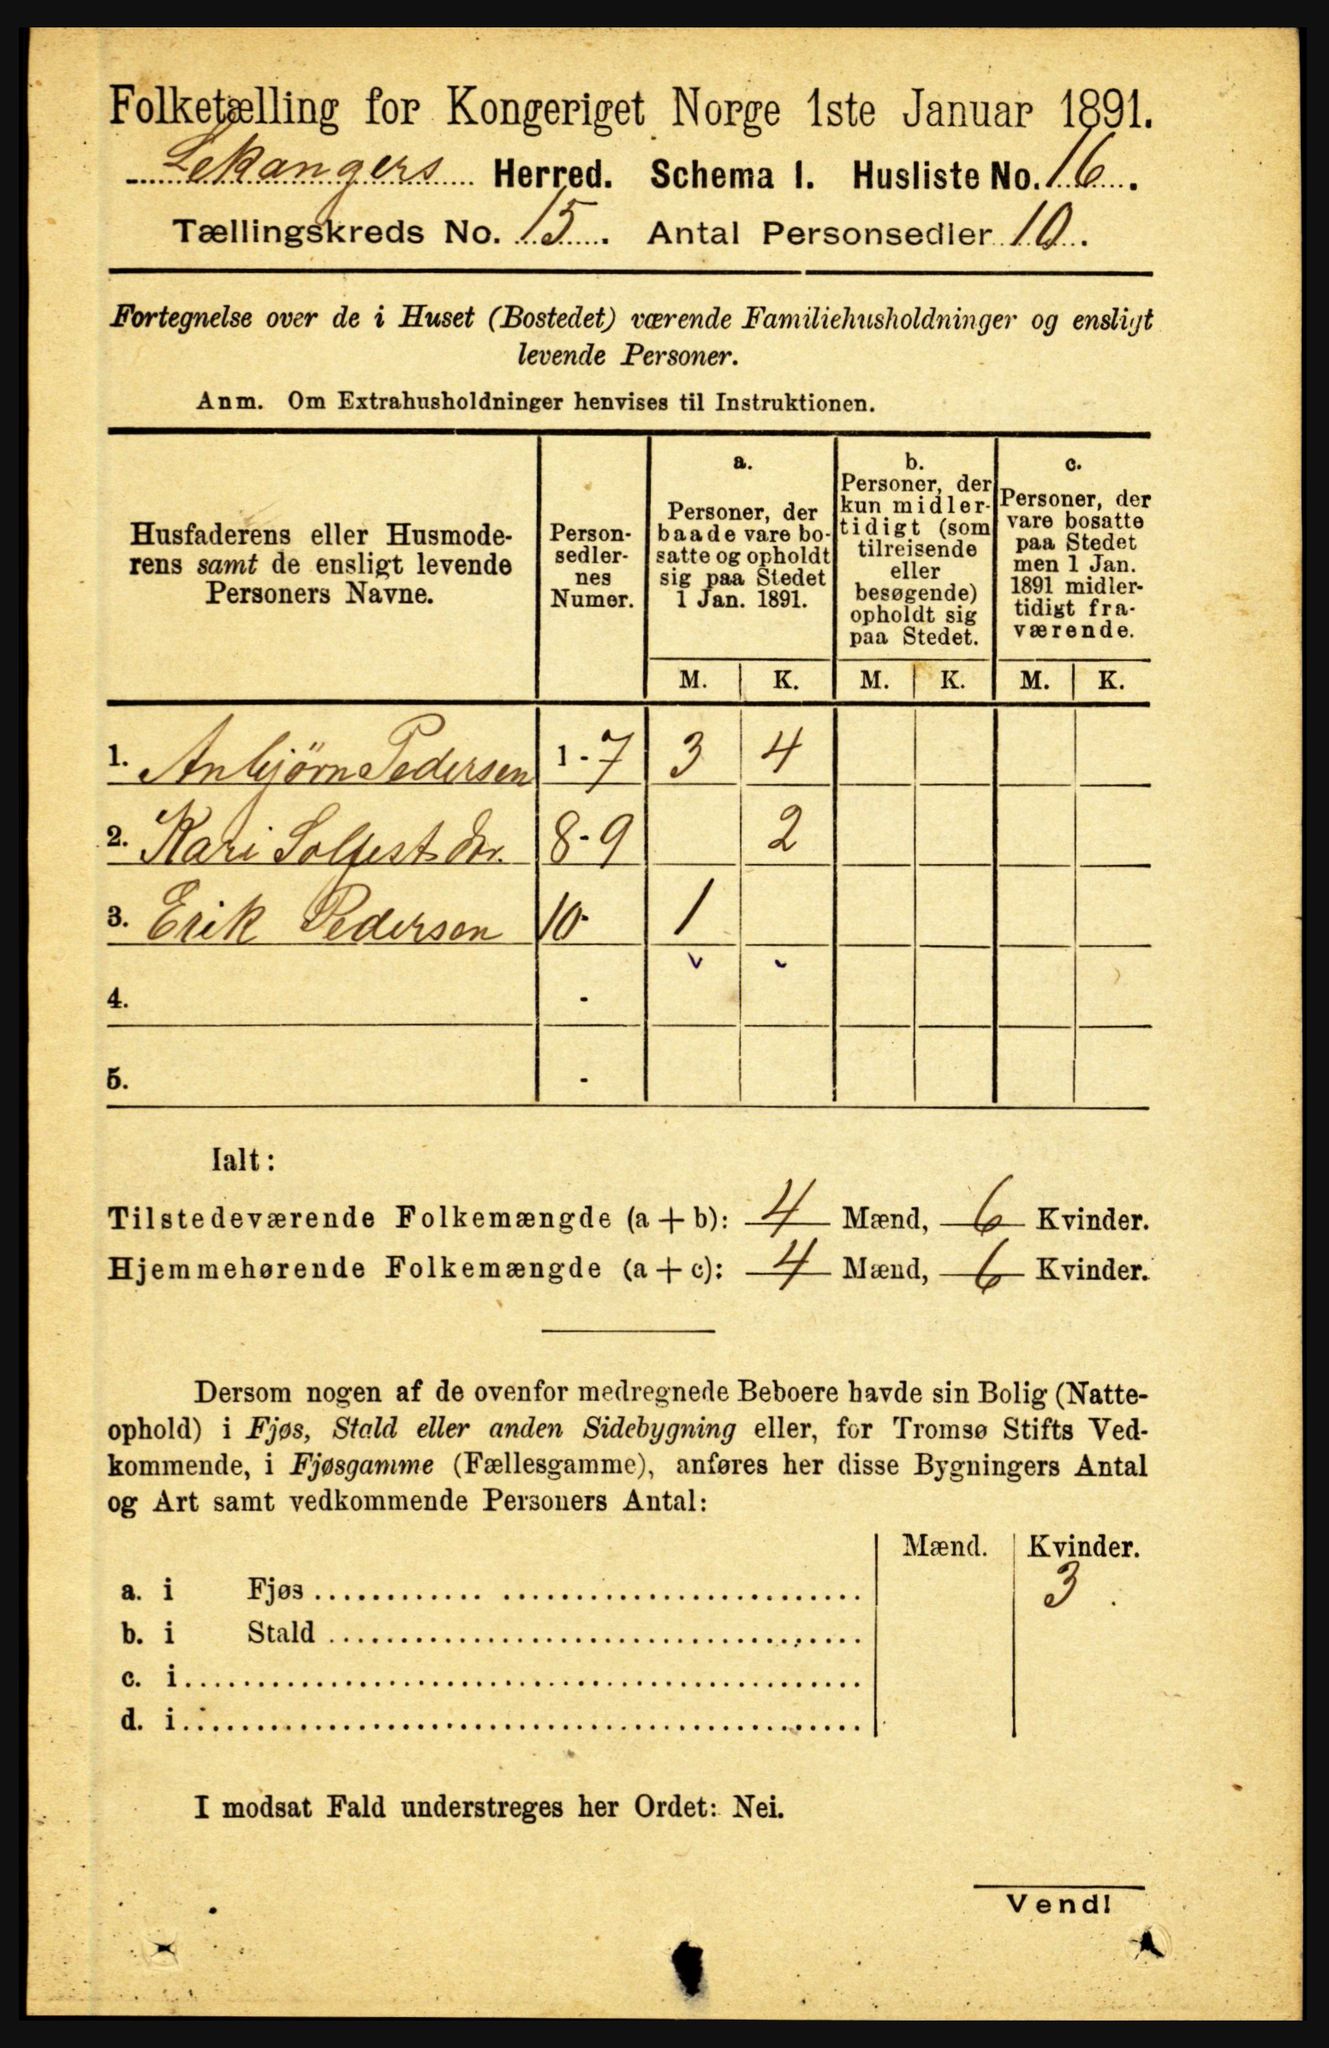 Folketælling for Kongeriget Norge 1ste Januar 1891.
Lekangers Herred. Schema 1. Husliste No. 16.
Tællingskreds No. 15. Antal Personsedler 10.
Fortegnelse over de i Huset (Bostedet) værende Familiehusholdninger og ensligt
levende Personer.
Anm. Om Extrahusholdninger henvises til Instruktionen.
Husfaderens eller Husmode-
rens samt de ensligt levende
Personers Navne.
Person-
sedler-
nes
Numer.
a.
Personer, der
baade vare bo-
satte og opholdt
sig paa Stedet
1 Jan. 1891.
b.
Personer, der
kun midler-
tidigt (som
tilreisende
eller
besøgende)
opholdt sig
paa Stedet.
c.
Personer, der
vare bosatte
paa Stedet
men 1 Jan.
1891 midler-
tidigt fra-
værende.
M. K. M. K. M. K.
1. Anbjörn Pedersen 1 - 7 3 4
2. Kari Solfestdr. 8 - 9 2
3. Erik Pedersen 10 - 1
4. -
5. -
Ialt:
Tilstedeværende Folkemængde (a + b): 4 Mænd, 6 Kvinder.
Hjemmehørende Folkemængde (a + c): 4 Mænd, 6 Kvinder.
Dersom nogen af de ovenfor medregnede Beboere havde sin Bolig (Natte-
ophold) i Fjøs, Stald eller anden Sidebygning eller, for Tromsø Stifts Ved-
kommende, i Fjøsgamme (Fællesgamme), anføres her disse Bygningers Antal
og Art samt vedkommende Personers Antal:
Mænd. Kvinder.
a. i Fjøs 3
b. i Stald
c. i
d. i
I modsat Fald understreges her Ordet: Nei.
Vend!